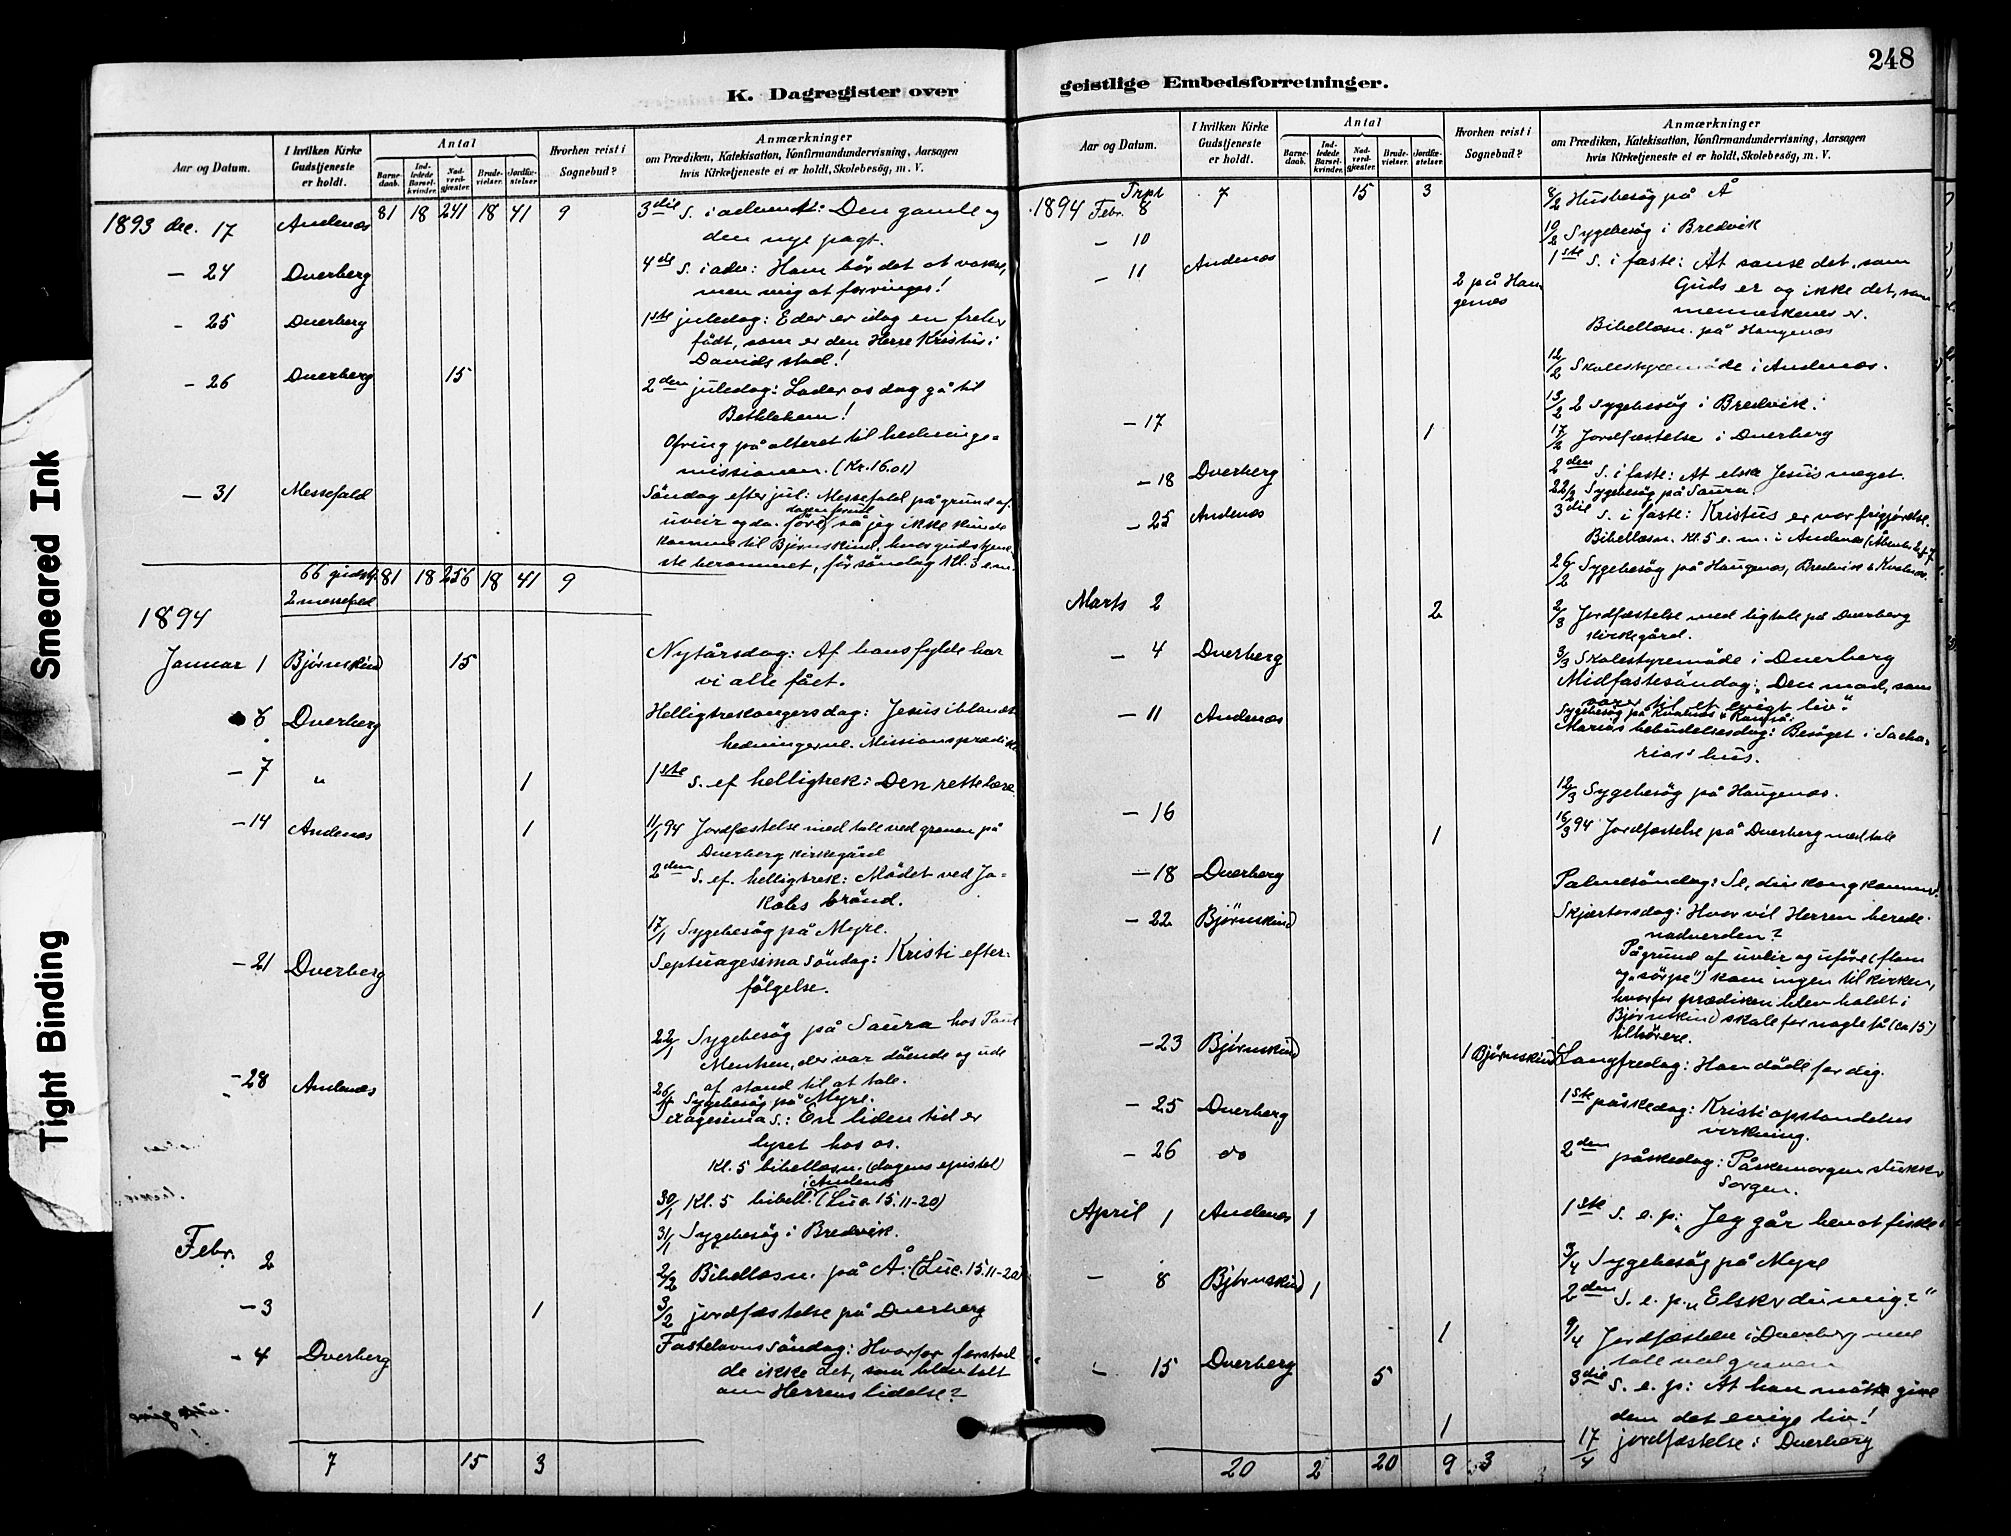 248
K. Dagregister over
geistlige Embedsforretninger.
Smeared Ink
Tight Binding
Aar og Datum.
I hvilken Kirke Gudstjeneste er holdt.
Antal
Barnedaab.
Indledede Barselkvinder.
Nadverdgjester.
Brudevielser.
Jordfæstelser.
Hvorhen reist i Sognebud?
Anmærkninger
om Prædiken, Katekisation, Konfirmandundervisning, Aarsagen
hvis Kirketjeneste ei er holdt, Skolebesøg, m. V.
1893 dec. 17 Andenæs 81 18 241 18 41 9 3die s. i advent: Den gamle og
den nye pagt.
- 24 Dverberg 4de s. i adv: Ham bør det at vokse,
men mig at forringes!
- 25 Dverberg 1ste juledag: Eder er idag en frelser
født, som er den Herre Kristus i
Davids stad!
- 26 Dverberg 15 2den juledag: Lader os dog gå til
Bethlehem!
Ofring på alteret til hedninge-
missionen. (Kr. 16.01)
- 31 Messefald Søndag efter jul: Messefald på grund af
uveir og da. føre, så jeg ikke kunde
komme til Bjørnskind, hvor gudstjene-
ste berammet, før søndag kl. 3 em.
66 gudstj. 81 18 256 18 41 9
2 messefald
1894
Januar 1 Bjørnskind 15 Nytårsdag: Af hans fylde har
vi alle fået.
6 Dverberg Helligtrekongersdag: Jesus iblandt
hedningerne. Missionsprædik
- 7 " 1 1ste s. ef helligtrek: Den rette lære
- 14 Andenæs 1 11/1 94 Jordfæstelse med tale ved graven på
Dverberg kirkegård
2den s. ef. helligtrek: Mødet ved Ja-
kobs brønd.
17/1 Sygebesøg på Myre.
- 21 Dverberg Septuagesima søndag: Kristi efter-
følgelse.
22/1 Sygebesøg på Saura hos Paul
der var døende og ude
af stand til at tale.
- 28 Andenæs Sygebesøg på Myre.
Sexagesima s.: En liden tid er
lyset hos os.
Kl. 5 bibellæsn. (dagens epistel)
i Andenæs
30/1 Kl. 5 bibell. (Luc. 15.11-20)
31/1 Sygebesøg i Bredvik.
Febr. 2 2/2 Bibellæsn. på Å. (Luc. 15.11-20)
- 3 1 3/2 jordfæstelse på Dverberg
- 4 Dverberg Fastelavns søndag: Hvorfor forstod
de ikke det, som blev talt
om Herrens lidelse?
7 15 3
Aar og Datum.
I hvilken Kirke Gudstjeneste er holdt.
Antal
Barnedaab.
Indledede Barselkvinder.
Nadverdgjester.
Brudevielser.
Jordfæstelser.
Hvorhen reist i Sognebud?
Anmærkninger
om Prædiken, Katekisation, Konfirmandundervisning, Aarsagen
hvis Kirketjeneste ei er holdt, Skolebesøg, m. V.
Trpt 7 15 3
1894 Febr. 8 8/2 Husbesøg på Å
- 10 10/2 Sygebesøg i Bredvik
- 11 Andenæs 2 på Haugenæs 1ste s. i faste: At sanse det, som
Guds er og ikke det, som
menneskenes er.
Bibellæsn. på Haugenæs
12/2 Skolestyremøde i Andenæs.
13/2 2 Sygebesøg i Bredvik.
- 17 1 17/2 Jordfæstelse i Dverberg
- 18 Dverberg 2den s. i faste: At elske Jesus meget.
22/2 Sygebesøg på Saura.
- 25 Andenæs 3die s. i faste: Kristus er vor frigjørelse.
Bibellæsn. kl. 5 e. m. i Andenæs
26/2 Sygebesøg på Haugenæs, Bredvik & Kvalnæs.
Marts 2 2 2/3 Jordfæstelse med ligtale på Dverberg
kirkegård.
- 4 Dverberg 3/3 Skolestyremøde i Dverberg
Midfastesøndag: "Den mad, som
varer til et evigt liv".
- 11 Andenæs Sygebesøg på Kvalnæs & Ramså.
Marias bebudelsesdag: Besøget i Sacha-
rias's hus.
12/3 Sygebesøg på Haugenæs.
- 16 1 16/3 94 Jordfæstelse på Dverberg med tale
- 18 Dverberg Palmesøndag: Se, din kong kommer.
- 22 Bjørnskind Skjærtorsdag: Hvor vil Herren berede
nadverden?
På grund af uveir og uføre (flom
og "sørpe") kom ingen til kirken,
hvorfor prædiken blev holdt i
Bjørnskind skole for nogle få (ca 15)
tilhørere.
- 23 Bjørnskind 1 Bjørnskind Langfredag: Han døde for dig.
- 25 Dverberg 1ste påskedag: Kristi opstandelses
virkning.
- 26 do 2den påskedag: Påskemorgen slukker
sorgen.
April 1 Andenæs 1 1ste s. e. p: "Jeg går hen at fiske
3/4 Sygebesøg på Myre
- 8 Bjørnskind 1 2den s. e. p. "Elsker du mig?"
1 9/4 Jordfæstelse i Dverberg med
tale ved graven
- 15 Dverberg 5 3die s. e. p: At han måtte give
dem det evige liv!
1 17/4 jordfæstelse i Dverberg
20 2 20 9 3